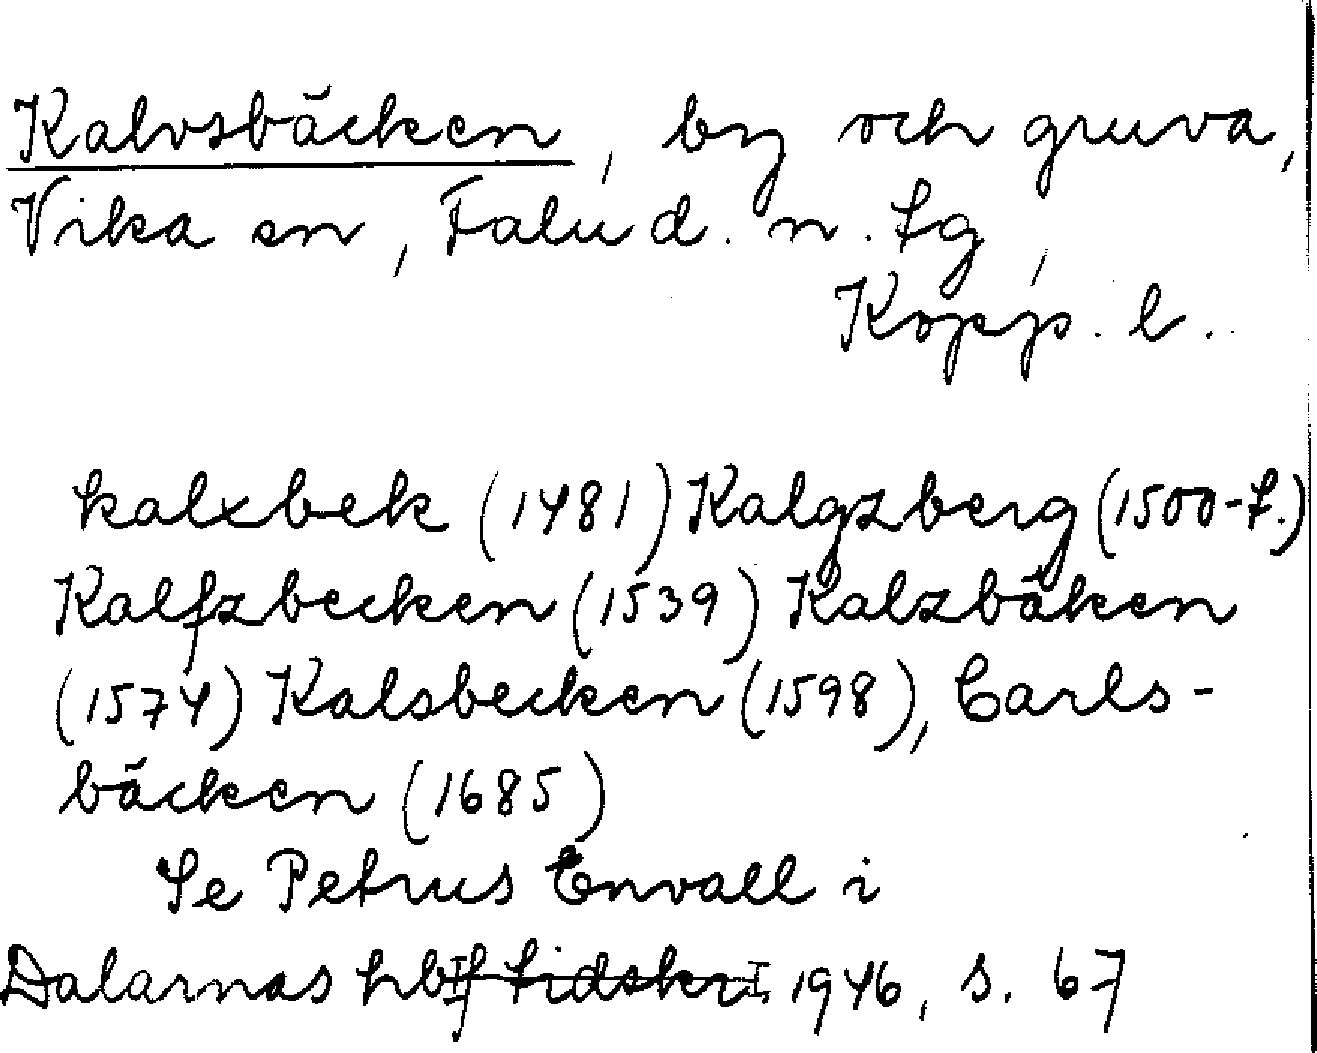 Kalvsbäcken, by och gruva,
Vika sn, Falu d. n. tg,
Kopp. l.
kalxbek (1481) Kalgzberg (1500-t.)
Kalfzbecken (1539) Kalzbäken
(1574) Kalsbecken (1598), Carls-
bäcken (1685)
Se Petrus Envall i
Dalarnas hbf tidskr. 1946, s. 67